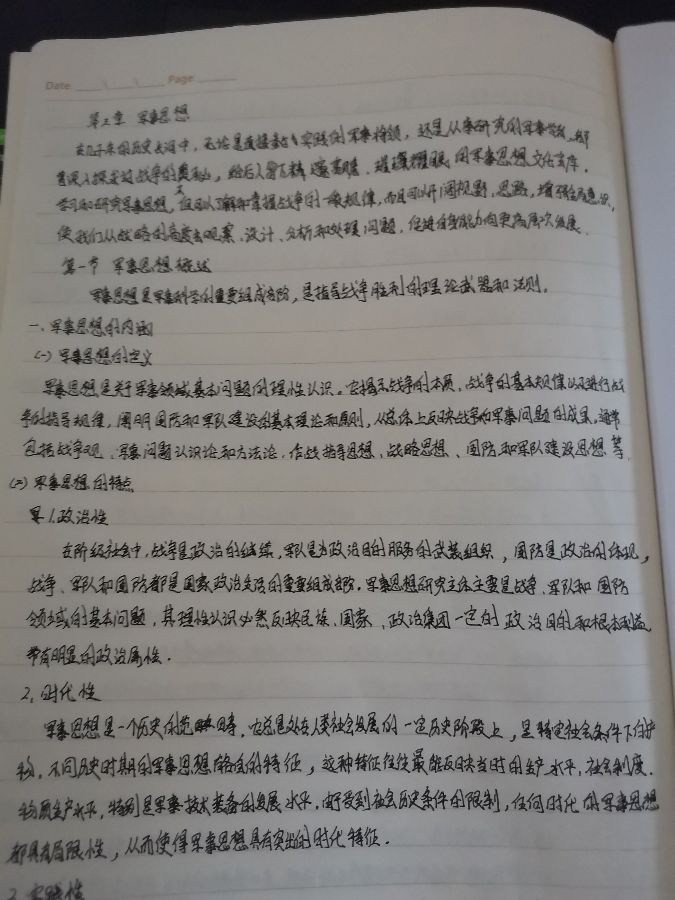 Date ____\____\____ Page ______
第三章 军事思想
在几千年的历史长河中，无论是直接参与实践的军事将领，还是从事研究的军事学者，都
曾深入探索过战争的奥秘，给后人留下精 璀璨耀眼的军事思想文化宝库。
学习和研究军事思想，不但可以了解和掌握战争的一般规律，而且可以开阔视野、思路，增强全局意识，
使我们从战略的高度去观察、设计、分析和处理问题，促进自身能力向更高层次发展。
第一节 军事思想概述
军事思想是军事科学的重要组成部分，是指导战争胜利的理论武器和法则。
一、军事思想的内涵
(一) 军事思想的定义
军事思想是关于军事领域基本问题的理性认识。它揭示战争的本质、战争的基本规律以及进行战
争的指导规律，阐明国防和军队建设的基本理论和原则，从总体上反映战争和军事问题的成果，通常
包括战争观、军事问题认识论和方法论、作战指导思想、战略思想、国防和军队建设思想等
(二) 军事思想的特点
1.政治性
在阶级社会中，战争是政治的继续，军队是为政治目的服务的武装组织，国防是政治的体现，
战争、军队和国防都是国家政治生活的重要组成部分。军事思想研究主体主要是战争、军队和国防
领域的基本问题，其理性认识必然反映民族、国家、政治集团一定的政治目的和根本利益
带有明显的政治属性。
2.时代性
军事思想是一个历史的范畴，它总是处在人类社会发展的一定历史阶段上，是特定社会条件下的产
物，不同历史时期的军事思想有各自的特征，这种特征往往最能反映当时的生产水平，社会制度、
物质生产水平，特别是军事技术装备的发展水平。由于受到社会历史条件的限制，任何时代的军事思想
都具有局限性，从而使得军事思想具有突出的时代特征。
3.实践性